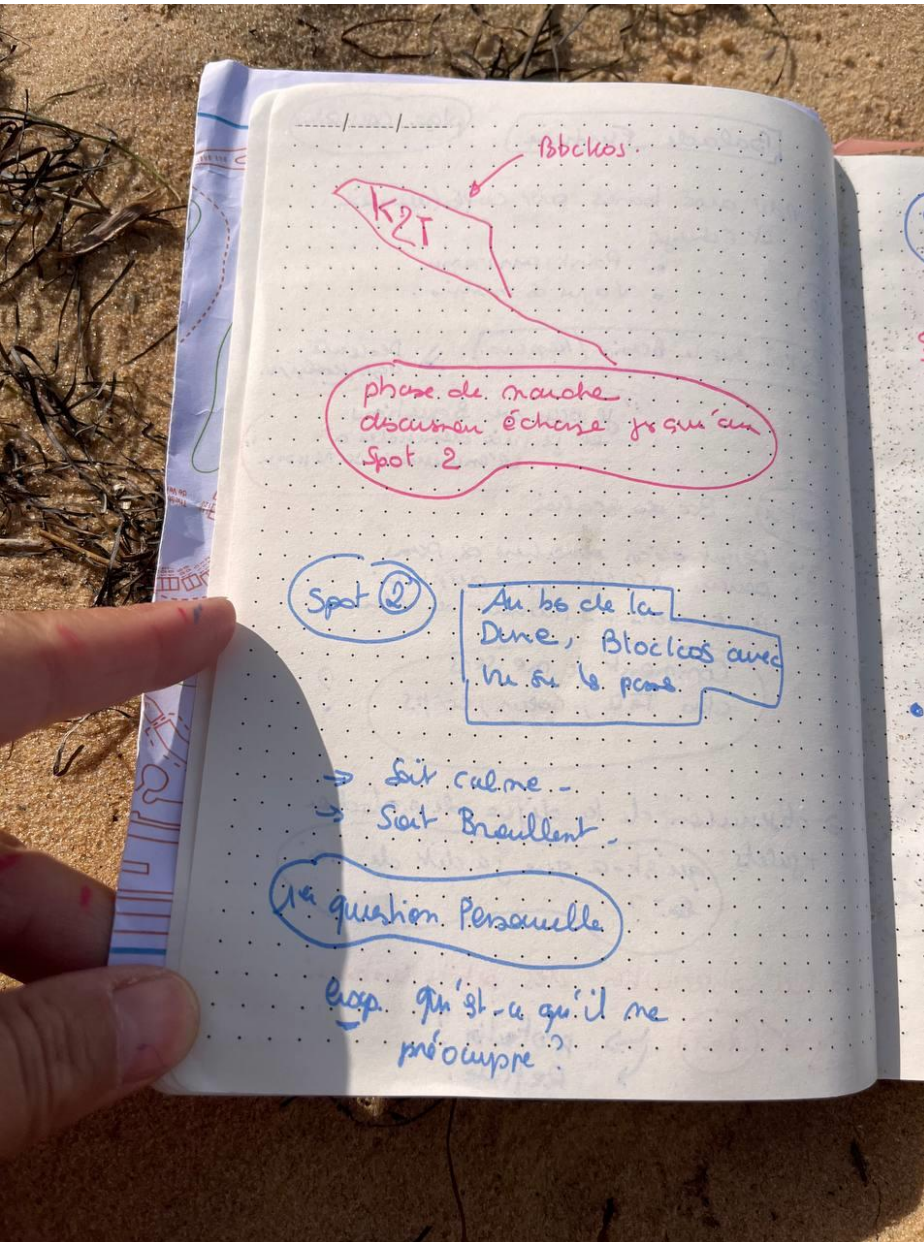 Blockos
K2T
phase de marche
discussion échange jsqu'au
Spot 2
Spot 2
Au bs de la
Dune, Blockos avec
Vu su le pass
→ Soit calme -
→ Soit Brouillent.
1er question Personnelle
exp. qu'est-ce qu'il me
préocupe ?